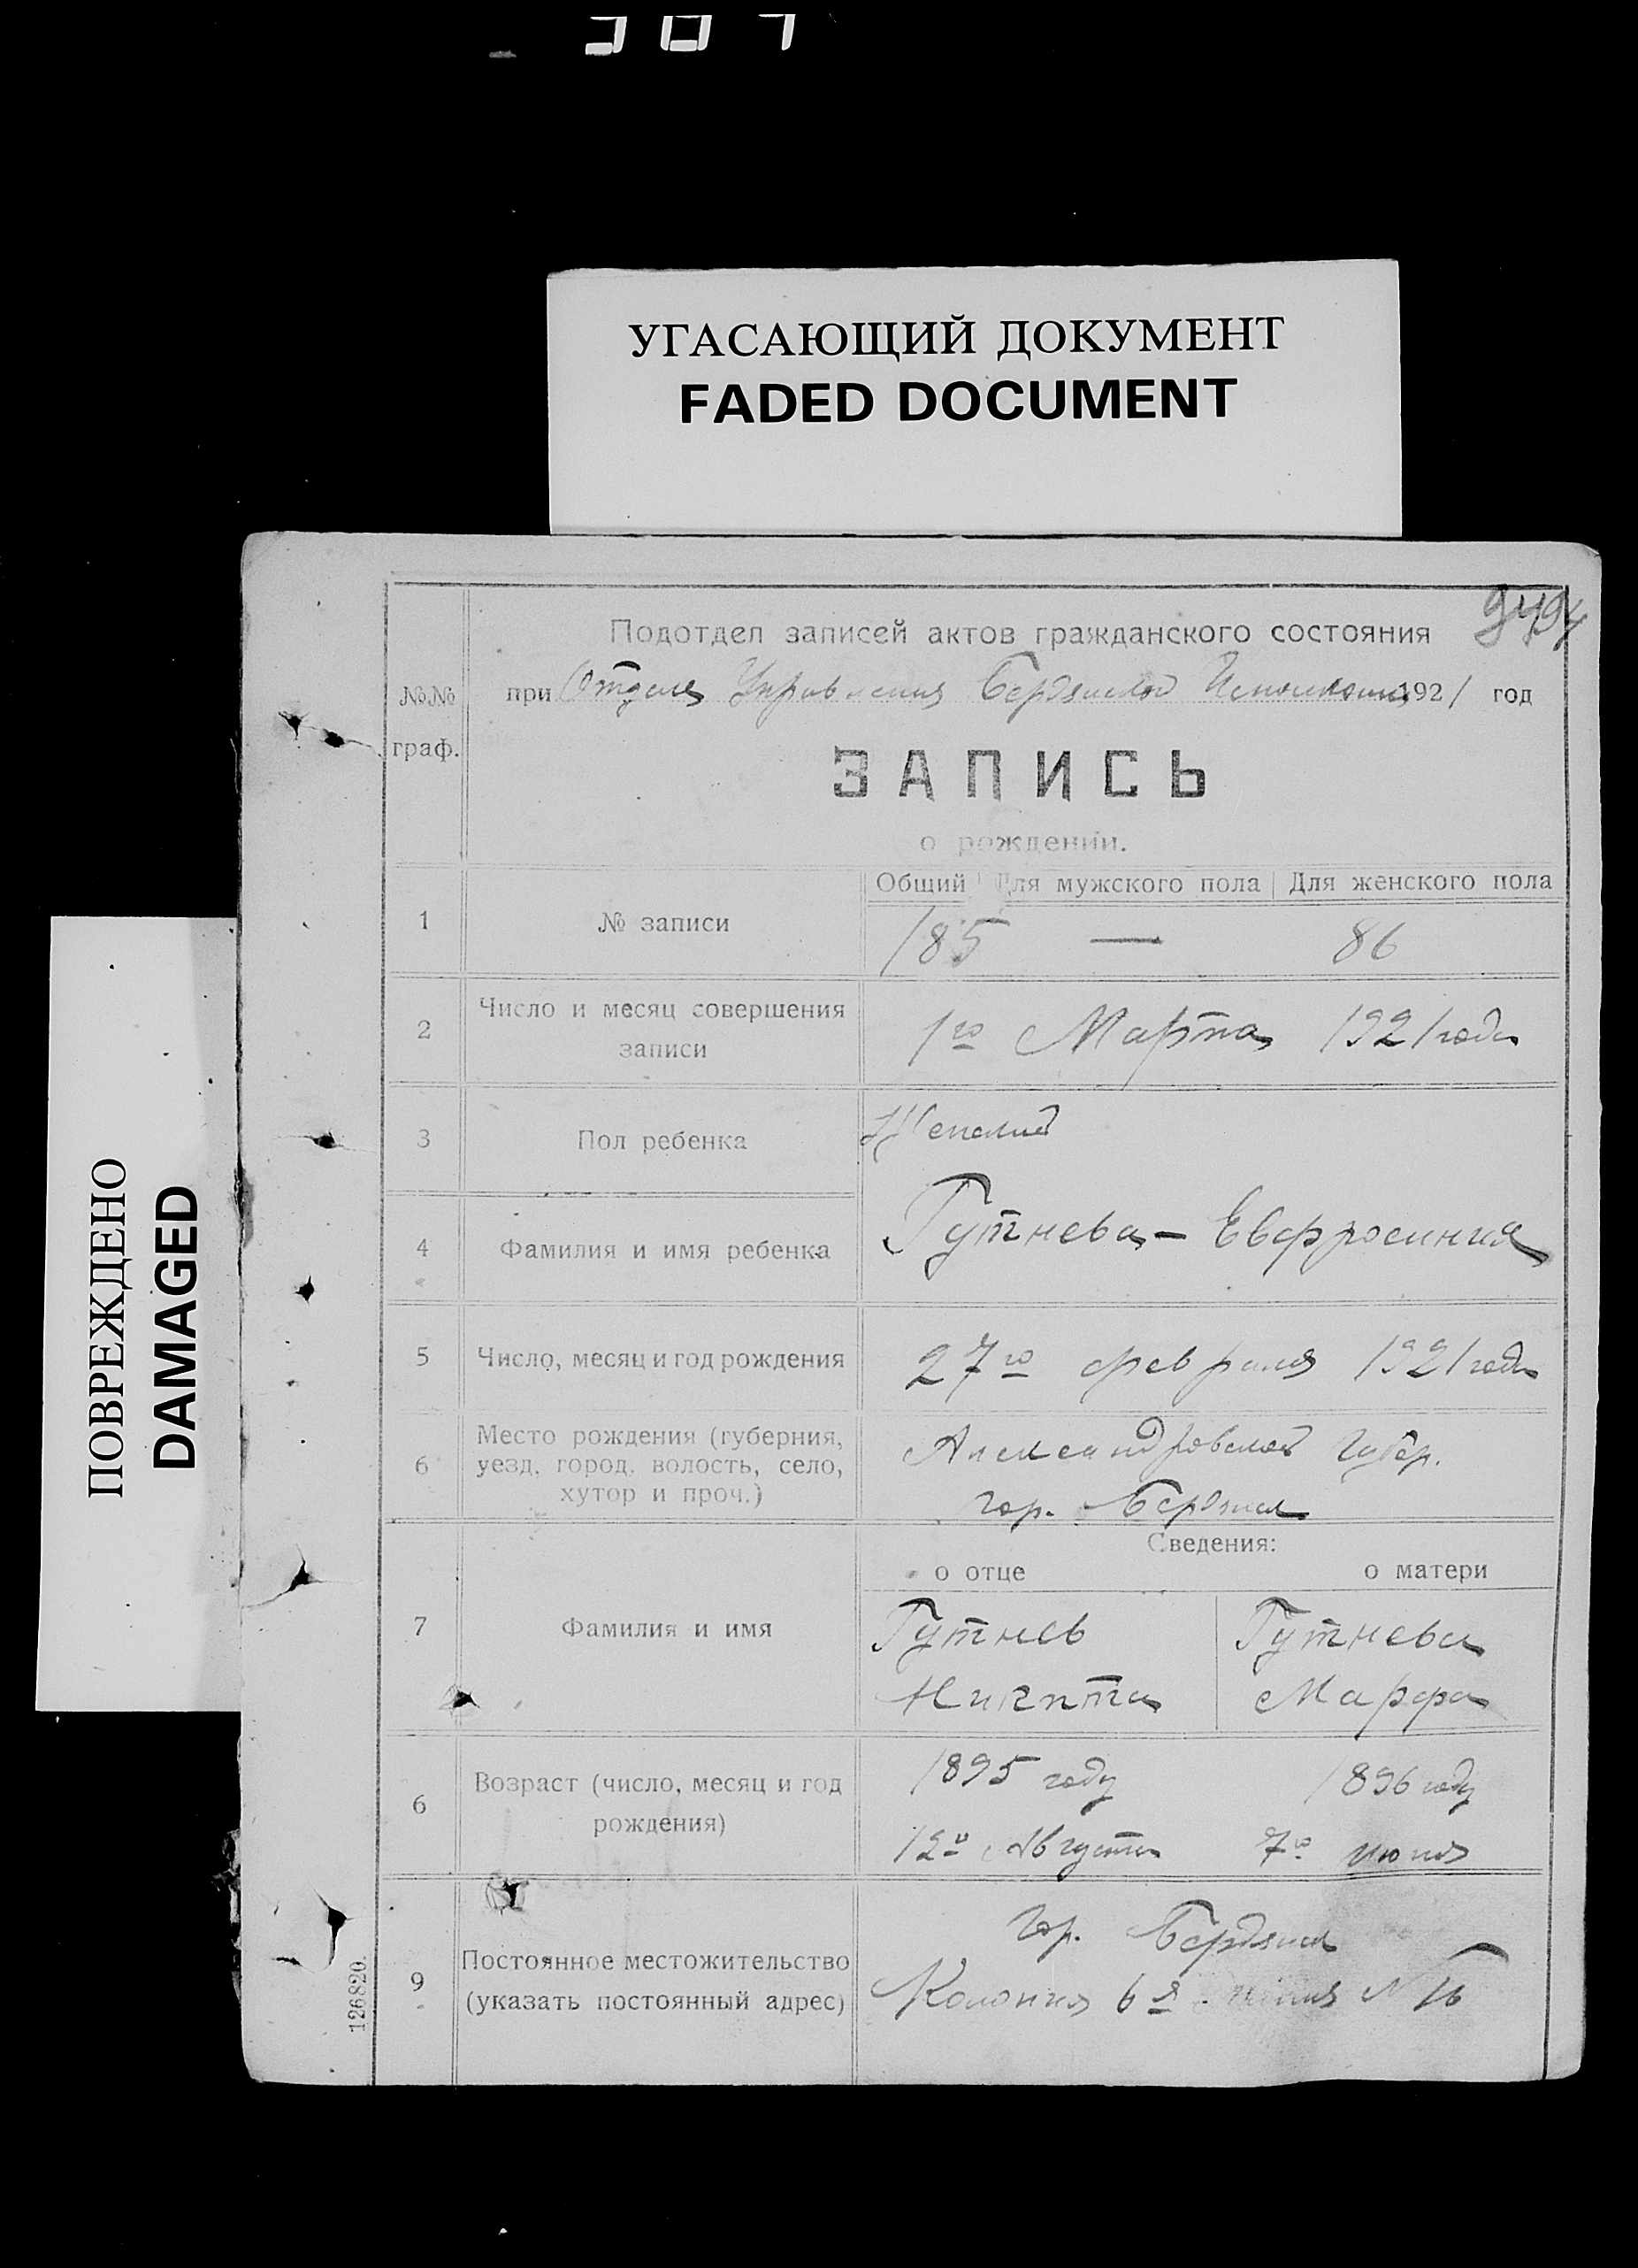 УГАСАЮЩИЙ ДОКУМЕНТ
FADED DOCUMENT
ПОВРЕЖДЕНО
DAMAGED
Подотдел записей актов гражданского состояния
№№ граф.
при Отделе Управления Бердянской 1921 год
ЗАПИСЬ
о рождении.
Общий Для мужского пола Для женского пола
1 № записи 185 — 86
2 Число и месяц совершения записи 1го Марта 1921 года
3 Пол ребенка Женский
4 Фамилия и имя ребенка Гутнева - Евфросиния
5 Число, месяц и год рождения 27го февраля 1921 года
6 Место рождения (губерния, уезд, город, волость, село, хутор и проч.) Александровской Губер.
гор. Бердянск
Сведения:
о отце о матери
7 Фамилия и имя Гутнев Гутнева
Никита Марфа
6 Возраст (число, месяц и год рождения) 1895 году 1896 году
12го Августа 7го июня
9 Постоянное местожительство (указать постоянный адрес) Гор. Бердянск
Колония 6я линия № 16
126820.